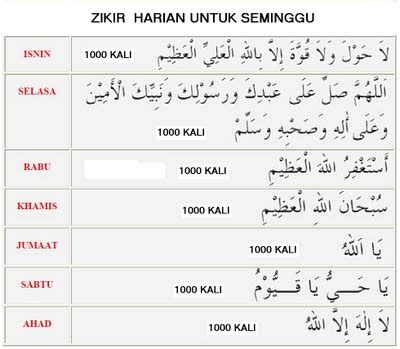 ZIKIR HARIAN UNTUK SEMINGGU
ISNIN 1000 KALI لَا حَوْلَ وَلَا قُوَّةَ إِلَّا بِاللهِ الْعَلِيِّ الْعَظِيْمِ
SELASA اَللَّهُمَّ صَلِّ عَلَى عَبْدِكَ وَرَسُوْلِكَ وَنَبِيِّكَ الْأَمِيْنَ
1000 KALI وَعَلَى أَلِهِ وَصَحْبِهِ وَسَلِّمْ
RABU 1000 KALI أَسْتَغْفِرُ اللهَ الْعَظِيْمِ
KHAMIS 1000 KALI سُبْحَانَ اللهِ الْعَظِيْمِ
JUMAAT 1000 KALI يَا اَللهُ
SABTU 1000 KALI يَا حَــيُّ يَا قَــيُّوْمُ
AHAD 1000 KALI لَا إِلَهَ إِلَّا اللهُ